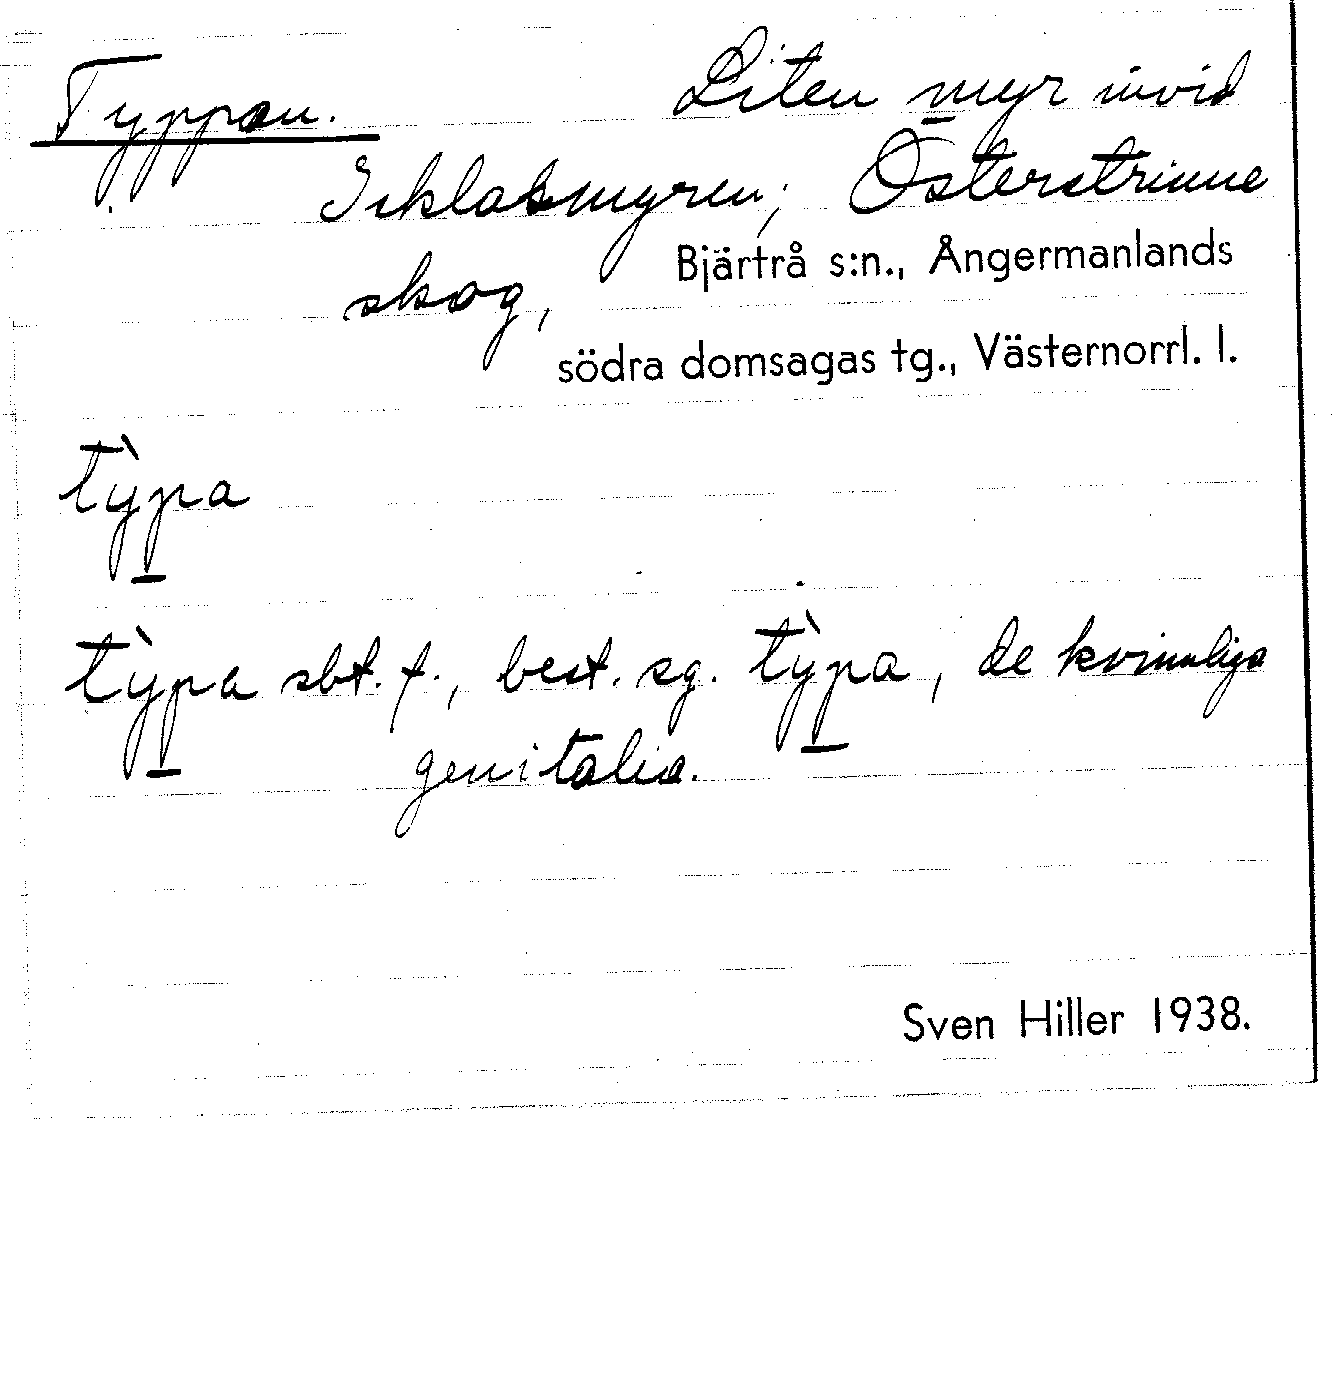 Typpan. Liten myr invid
Isklakmyren; Österstrinne
skog, Bjärtrå s:n., Ångermanlands
södra domsagas tg., Västernorrl. l.
ty̍p̱a
ty̍p̱a sbt. f., best. sg. ty̍p̱a, de kvinnliga
genitalia.
Sven Hiller 1938.